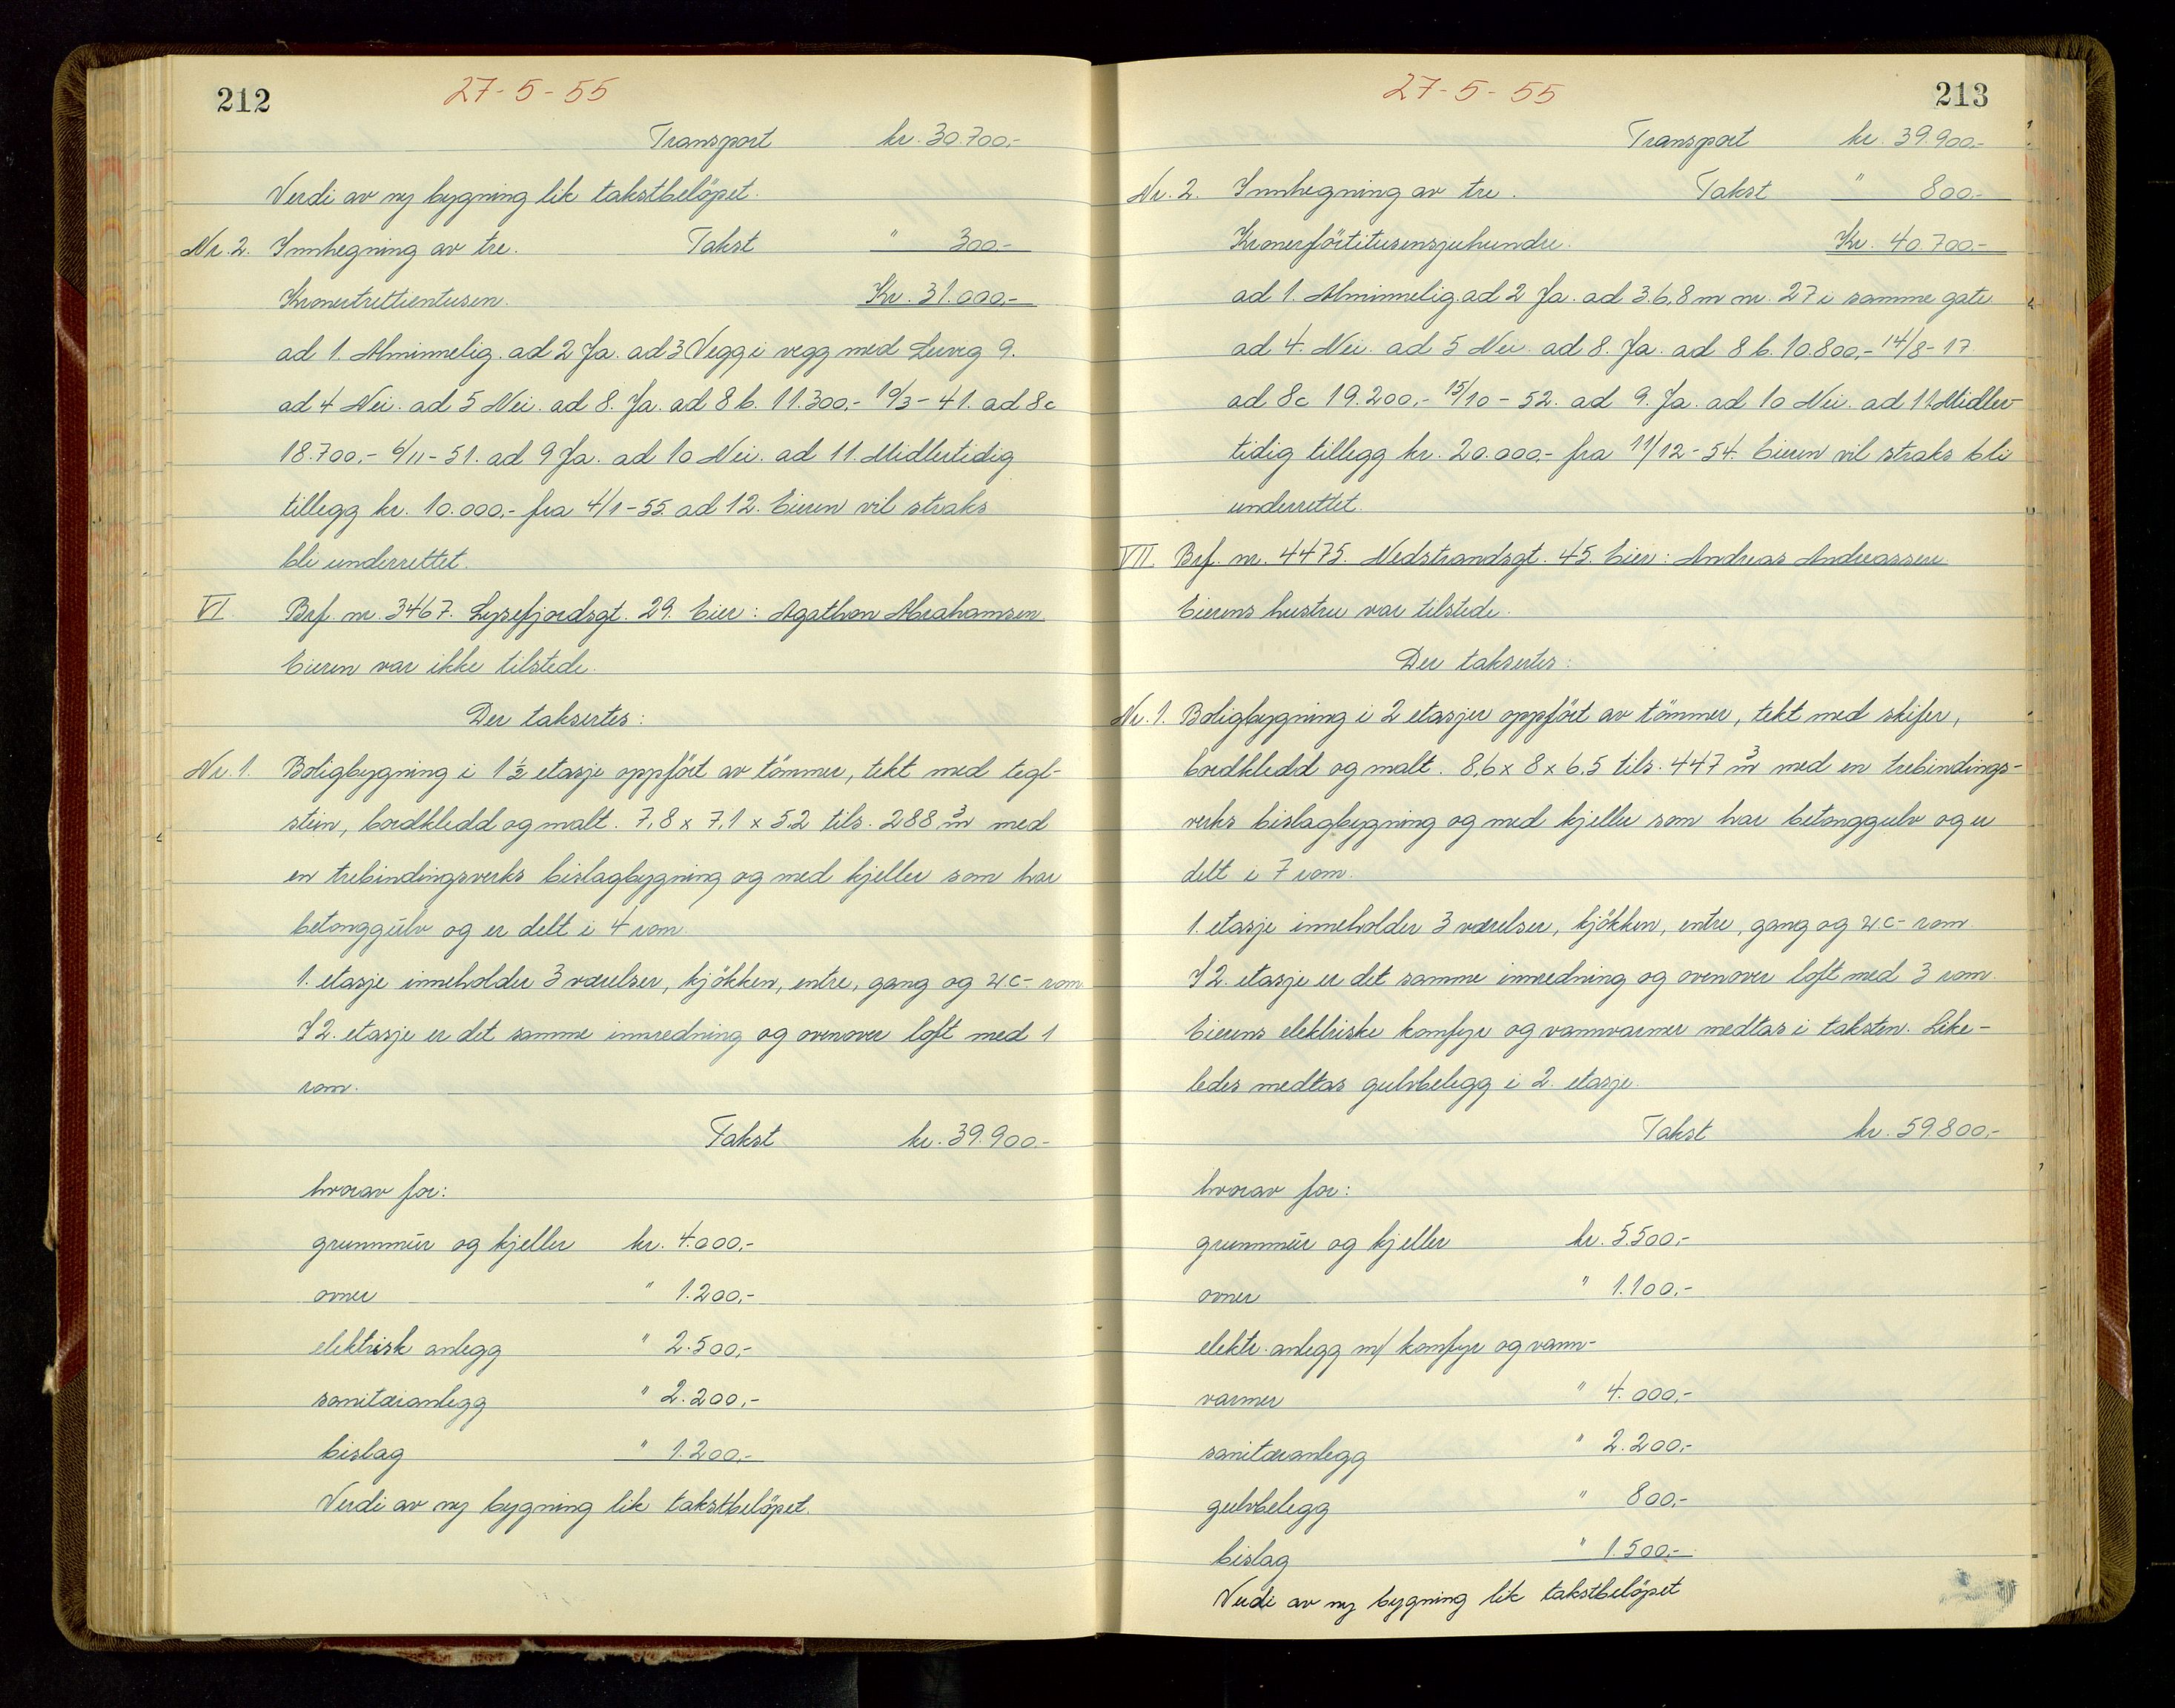 212
27-5-55
Transport kr. 30.700,-
Verdi av ny bygning lik takstbelöpet.
Nr. 2. Innhegning av tre. Takst " 300,-
Kronertrettientusen. Kr. 31.000,-
ad 1. Alminnelig. ad 2 Ja. ad 3 Vegg i vegg med Lervig 9.
ad 4 Nei. ad 5 Nei. ad 8. Ja. ad 8 b. 11.300,- 19/3-41. ad 8c
18.700,- 6/11-51. ad 9 Ja. ad 10 Nei. ad 11. Midlertidig
tillegg kr. 10.000,- fra 4/1-55. ad 12. Eieren vil straks
bli underrettet.
VI. Brf. nr. 3467. Lysefjordsgt. 29. Eier: Agathon Abrahamsen
Eieren var ikke tilstede.
Der taksertes:
Nr. 1. Boligbygning i 1 1/2 etasje oppfört av tömmer, tekt med tegl-
stein, bordkledd og malt. 7,8 x 7,1 x 5,2 tils. 288 m³ med
en trebindingsverks bislagbygning og med kjeller som har
betonggulv og er delt i 4 rom.
1. etasje inneholder 3 værelser, kjökken, entre, gang og w.c- rom.
I 2. etasje er det samme innredning og ovenover loft med 1
rom.
Takst kr. 39.900.-
hvorav for:
grunnmur og kjeller kr. 4.000,-
ovner " 1.200,-
elektrisk anlegg " 2.500,-
sanitæranlegg " 2.200,-
bislag " 1.200,-
Verdi av ny bygning lik takstbelöpet.
213
27-5-55
Transport kr. 39.900,-
Nr. 2. Innhegning av tre. Takst " 800,-
Kronerförtitusensjuhundre. Kr. 40.700,-
ad 1. Alminnelig. ad 2 Ja. ad 3. 6,8 m nr. 27 i samme gate.
ad 4. Nei. ad 5 Nei. ad 8. Ja. ad 8 b. 10.800,- 14/8-17.
ad 8c 19.200,- 15/10-52. ad 9. Ja. ad 10 Nei. ad 11. Midler-
tidig tillegg kr. 20.000,- fra 11/12-54. Eieren vil straks bli
underrettet.
VII. Brf. nr. 4475. Nedstrandsgt. 45. Eier: Andreas Andreassen.
Eierens hustru var tilstede.
Der taksertes:
Nr. 1. Boligbygning i 2 etasjer oppfört av tömmer, tekt med skifer,
bordkledd og malt. 8,6 x 8 x 6,5 tils. 447 m³ med en trebindings-
verks bislagbygning og med kjeller som har betonggulv og er
delt i 7 rom.
1. etasje inneholder 3 værelser, kjökken, entre, gang og w.c- rom
I 2. etasje er det samme innredning og ovenover loft med 3 rom.
Eierens elektriske komfyr og vannvarmer medtas i taksten. Like-
ledes medtas gulvbelegg i 2. etasje.
Takst kr. 59.800,-
hvorav for:
grunnmur og kjeller kr. 5.500,-
ovner " 1.100,-
elektr. anlegg m/ komfyr og vann-
varmer " 4.000,-
sanitæranlegg " 2.200,-
gulvbelegg " 800,-
bislag " 1.500,-
Verdi av ny bygning lik takstbelöpet